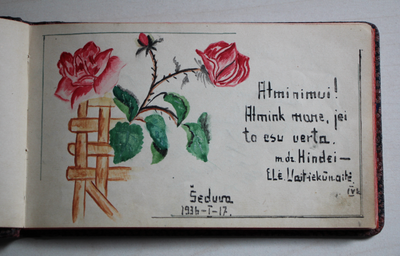 Atminimui!
Atmink mane, jei
to esu verta.
Hindei —
Elė
IV kl
Šeduva
1936-I-17.